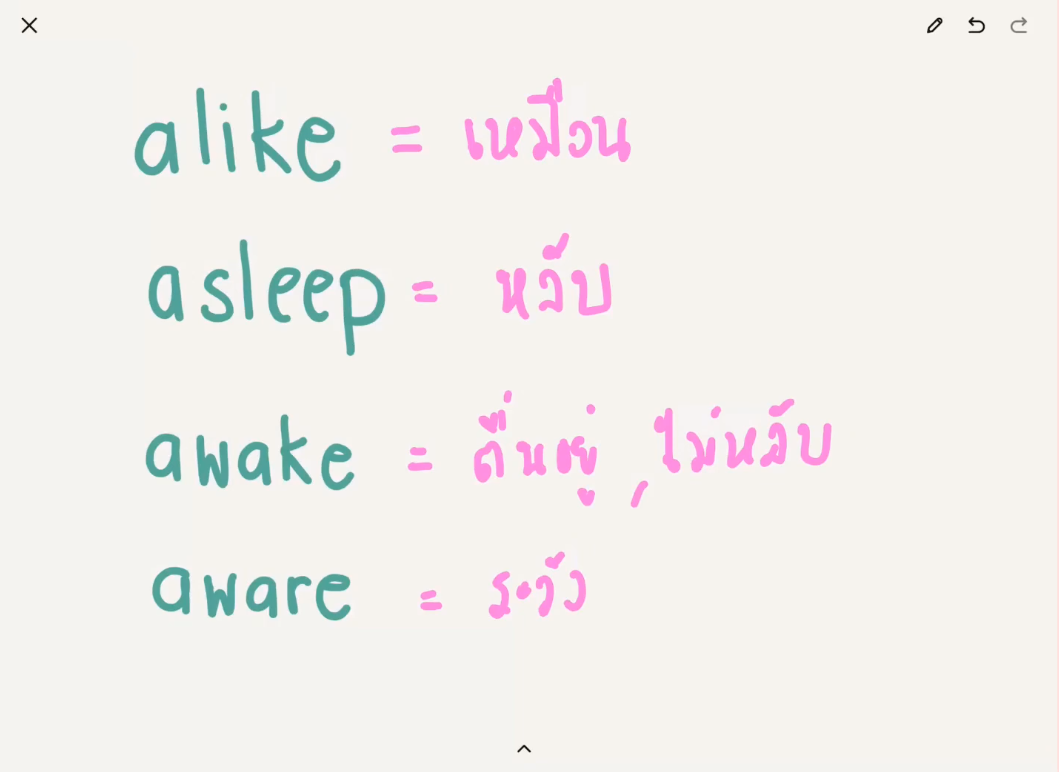 alike = เหมือน
asleep = หลับ
awake = ตื่นอยู่ , ไม่หลับ
aware = ระวัง